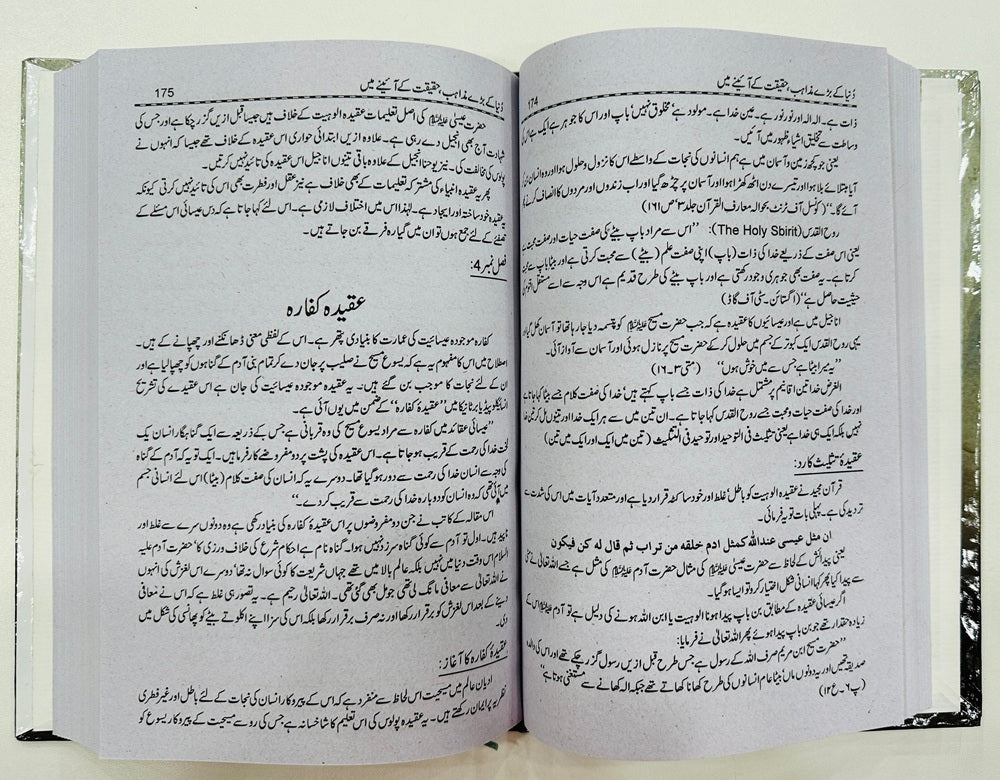 دُنیا کے بڑے مذاہب حقیقت کے آئینے میں 174
ذات ہے۔ الہ الہ اور نور نور ہے۔ عین خدا ہے۔ مولود ہے مخلوق نہیں باپ اور اس کا جوہر ہے ایک ہے
وساطت سے تخلیق اشیاء ظہور میں آئیں۔
یعنی جو کچھ زمین و آسمان میں ہے ہم انسانوں کی نجات کے واسطے اس کا نزول و حلول ہوا اور وہ انسان
آیا مبتلائے بلا ہوا اور تیسرے دن اٹھ کھڑا ہوا اور آسمان پر چڑھ گیا اور اب زندوں اور مردوں کا انصاف کرنے
آئے گا۔‘‘ (کونسل آف ٹرنٹ بحوالہ معارف القرآن جلد ۳‘ ص ۱۶۱)
روح القدس (The Holy Sbirit): ’’اس سے مراد باپ بیٹے کی صفت حیات اور صفت محبت ہے
یعنی اس صفت کے ذریعے خدا کی ذات (باپ) اپنی صفت علم (بیٹے) سے محبت کرتی ہے اور بیٹا باپ سے محبت
کرتا ہے۔ یہ صفت بھی جوہری وجود رکھتی ہے اور باپ بیٹے کی طرح قدیم ہے اس وجہ سے اسے مستقل اقنوم کی
حیثیت حاصل ہے‘‘ (اگسٹائن۔ سٹی آف گاڈ)
اناجیل میں ہے اور عیسائیوں کا عقیدہ ہے کہ جب حضرت مسیح علیہ السلام کو بپتسمہ دیا جا رہا تھا تو آسمان کھل گیا اور
یہی روح القدس ایک کبوتر کے جسم میں حلول کر کے حضرت مسیح پر نازل ہوئی اور آسمان سے آواز آئی۔
’’یہ میرا بیٹا ہے جس سے میں خوش ہوں‘‘ (متی ۳۔۱۶)
الغرض خدا تین اقانیم پر مشتمل ہے خدا کی ذات جسے باپ کہتے ہیں‘ خدا کی صفت کلام جسے بیٹا کہا جاتا ہے
اور خدا کی صفت حیات و محبت جسے روح القدس کہا جاتا ہے۔ ان تین میں سے ہر ایک خدا اور تینوں مل کر تین خدا
نہیں بلکہ ایک ہی خدا ہے یعنی تثلیث فی التوحید اور توحید فی التثلیث (تین میں ایک اور ایک میں تین)
عقیدۂ تثلیث کا رد:
قرآن مجید نے عقیدہ الوہیت کو باطل‘ غلط اور خود ساختہ قرار دیا ہے اور متعدد آیات میں اس کی شدت سے
تردید کی ہے۔ پہلی بات تو یہ فرمائی۔
ان مثل عیسی عنداللہ کمثل ادم خلقه من تراب ثم قال له کن فیکون
یعنی پیدائش کے لحاظ سے حضرت عیسیٰ علیہ السلام کی مثال حضرت آدم علیہ السلام کی مثل ہے جسے اللہ تعالیٰ نے مٹی
سے پیدا کیا پھر کہا انسانی شکل اختیار کر و تو ایسا ہو گیا۔
اگر عیسائی عقیدہ کے مطابق بن باپ پیدا ہونا الوہیت یا ابن اللہ ہونے کی دلیل ہے تو آدم علیہ السلام اس کے
زیادہ حقدار تھے جو بن باپ پیدا ہوئے پھر اللہ تعالیٰ نے فرمایا:
’’حضرت مسیح ابن مریم صرف اللہ کے رسول ہے جس طرح قبل ازیں رسول گزر چکے تھے اور اس کی والدہ
صدیقہ تھیں اور یہ دونوں ماں‘ بیٹا عام انسانوں کی طرح کھانا کھاتے تھے جبکہ الہ کھانے سے مستغنی ہوتا ہے‘‘
(پ ۶۔ ع ۱۴)
دُنیا کے بڑے مذاہب حقیقت کے آئینے میں 175
حضرت عیسیٰ علیہ السلام کی اصل تعلیمات عقیدہ الوہیت کے خلاف ہیں جیسا قبل ازیں گزر چکا ہے اور جس کی
شہادت آج بھی انجیل دے رہی ہے۔ علاوہ ازیں ابتدائی حواری اس عقیدہ کے خلاف تھے جیسا کہ انہوں نے
پولس کی مخالفت کی۔ نیز یوحنا انجیل کے علاوہ باقی تینوں اناجیل اس عقیدہ کی تائید نہیں کرتیں۔
پھر یہ عقیدہ انبیاء کی مشترکہ تعلیمات کے بھی خلاف ہے نیز عقل اور فطرت بھی اس کی تائید نہیں کرتی کیونکہ
یہ عقیدہ خود ساختہ اور ایجاد ہے۔ لہٰذا اس میں اختلاف لازمی ہے۔ اس لئے کہا جاتا ہے کہ دس عیسائی اس مسئلے کے
تصفئے کے لئے جمع ہوں تو ان میں گیارہ فرقے بن جاتے ہیں۔
فصل نمبر 4:
عقیدہ کفارہ
کفارہ موجودہ عیسائیت کی عمارت کا بنیادی پتھر ہے۔ اس کے لفظی معنی ڈھانکنے اور چھپانے کے ہیں۔
اصطلاح میں اس کا مفہوم یہ ہے کہ یسوع مسیح نے صلیب پر جان دے کر تمام بنی آدم کے گناہوں کو چھپا لیا ہے اور
ان کے لئے نجات کا موجب بن گئے ہیں۔ یہ عقیدہ موجودہ عیسائیت کی جان ہے اس عقیدے کی تشریح
انسائیکلوپیڈیا برٹانیکا میں ’’عقیدۂ کفارہ‘‘ کے ضمن میں یوں آئی ہے۔
’’عیسائی عقائد میں کفارہ سے مراد یسوع مسیح کی وہ قربانی ہے جس کے ذریعہ سے ایک گناہ گار انسان یک
لخت خدا کی رحمت کے قریب ہو جاتا ہے۔ اس عقیدہ کی پشت پر دو مفروضے کار فرما ہیں۔ ایک تو یہ کہ آدم کے گناہ
کی وجہ سے انسان خدا کی رحمت سے دور ہو گیا تھا۔ دوسرے یہ کہ انسان کی صفت کلام (بیٹا) اس لئے انسانی جسم
میں آئی تھی کہ وہ انسان کو دوبارہ خدا کی رحمت سے قریب کر دے۔‘‘
اس مقالہ کے کاتب نے جن دو مفروضوں پر اس عقیدۂ کفارہ کی بنیاد رکھی ہے وہ دونوں سرے سے غلط اور
ناپید ہیں۔ اول تو آدم سے کوئی گناہ سرزد نہیں ہوا۔ گناہ نام ہے احکام شرع کی خلاف ورزی کا‘ حضرت آدم علیہ
السلام اس وقت دنیا میں نہیں بلکہ عالم بالا میں تھے جہاں شریعت کا کوئی سوال نہ تھا‘ دوسرے اس لغزش کی انہوں
نے اللہ تعالیٰ سے معافی مانگ لی تھی جو مل بھی گئی تھی۔ اللہ تعالیٰ رحیم ہے۔ یہ تصور ہی غلط ہے کہ اس نے معافی
دینے کے بعد اس لغزش کو برقرار رکھا اور نہ صرف برقرار رکھا بلکہ اس کی سزا اپنے اکلوتے بیٹے کو پھانسی کی شکل میں
دی۔
عقیدۂ کفارہ کا آغاز:
ادیان عالم میں مسیحیت اس لحاظ سے منفرد ہے کہ اس کے پیروکار انسان کی نجات کے لئے باطل اور غیر فطری
نظریہ پر ایمان رکھتے ہیں۔ یہ عقیدہ پولوس کی اس تعلیم کا شاخسانہ ہے جس کی رو سے مسیحیت کے پیروکار یسوع کو